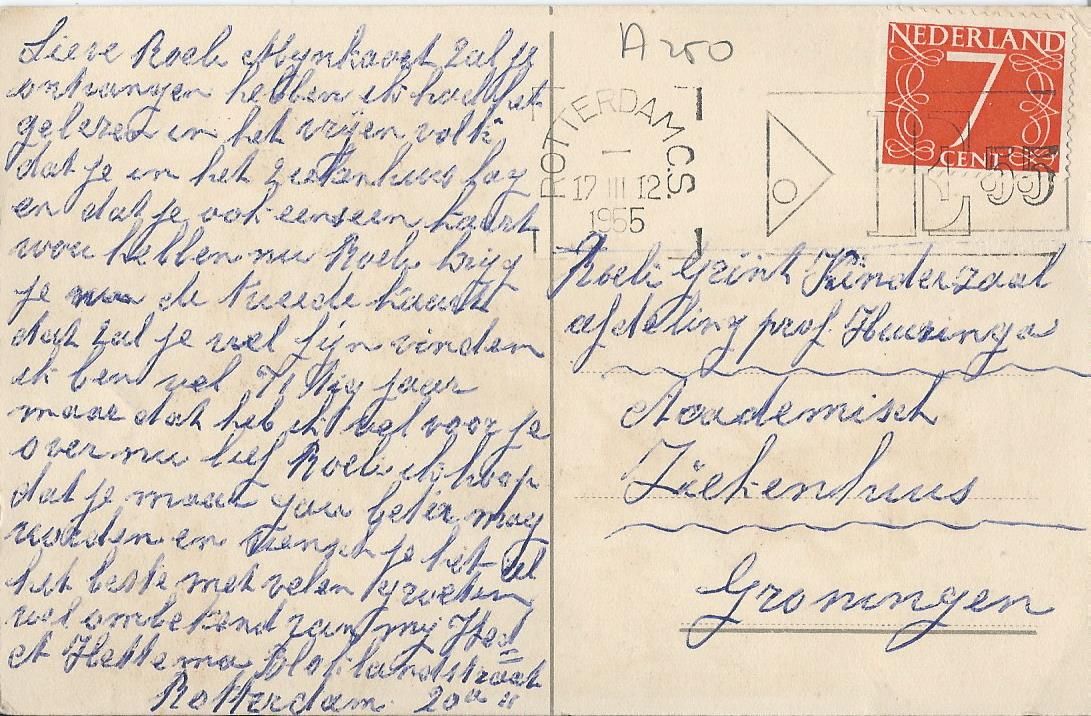 Lieve Roeli Mynkaart zal je
ontvangen hebben ik had het
gelezen in het vrijen volk
dat je in het ziekenhuis lag
en dat je ook eens een kaart
wou hebben nu Roeli krijg
je de tweede kaart
dat zal je wel fijn vinden
ik ben wel 71 jaar
maar dat heb ik wel voor je
over nu lief Roeli ik hoop
dat je maar gau beter mag
worden en wensch je het al
het beste met velen groeten
wel ombekend zam my
A Hettema straat
Rotterdam 20a
A 250
NEDERLAND
7
CENT
ROTTERDAM C.S.
17 III 12
1955
E 55
Roeli Grint Kinderzaal
afdeling prof. Huizinga
Academisch
Ziekenhuus
Groningen